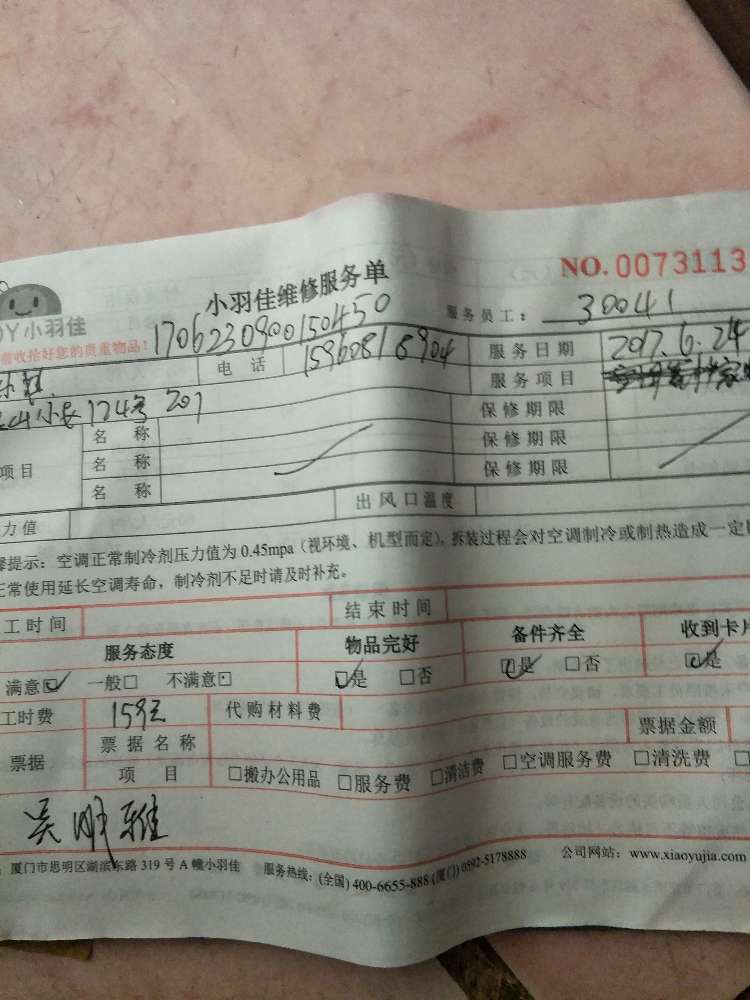 小羽佳维修服务单 NO.0073113
小羽佳
1706230900150450 服务员工: 30041
收拾好您的贵重物品!
电话 服务日期 2017.6.24
服务项目
124号 207 保修期限
项目 名称 保修期限
名称 保修期限
名称
力值 出风口温度
提示:空调正常制冷剂压力值为0.45mpa(视环境、机型而定),拆装过程会对空调制冷或制热造成一定
正常使用延长空调寿命,制冷剂不足时请及时补充。
工时间 结束时间
服务态度 物品完好 备件齐全 收到卡片
满意☑ 一般□ 不满意□ ☑是 □否 ☑是 □否 ☑是
工时费 159元 代购材料费
票据 票据名称 票据金额
项目 □搬办公用品 □服务费 □清洁费 □空调服务费 □清洗费
吴明雅
:厦门市思明区湖滨东路319号A幢小羽佳 服务热线:(全国)400-6655-888(厦门)0592-5178888 公司网站:www.xiaoyujia.com